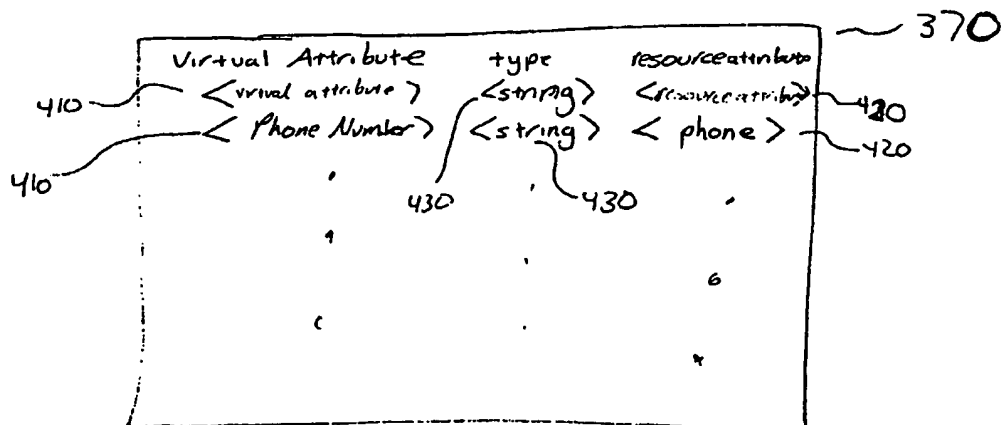 370
Virtual Attribute type resourceattribute
410 <virtual attribute> <string> <resource attribute> 420
<Phone Number> <string> <phone> 420
410 430 430